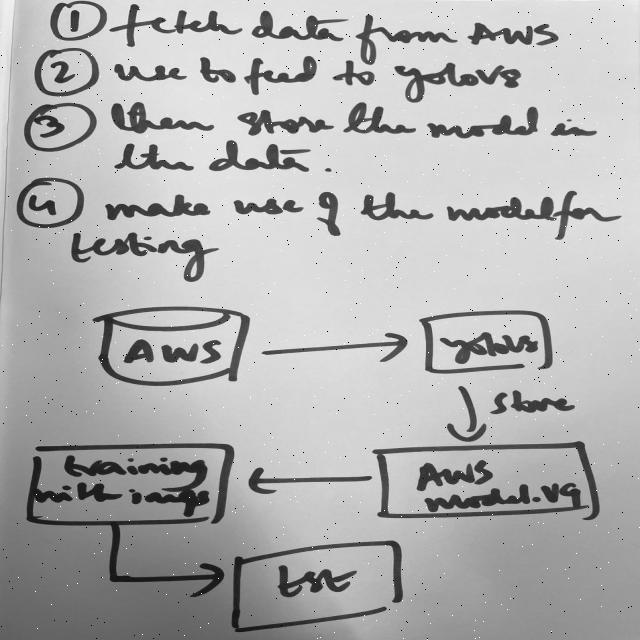 1 fetch data from AWS
2 use to feed to yolov5
3 then store the model in
the data.
4 make use of the model for
testing
AWS
yolov5
store
training
with image
AWS
model.v9
test